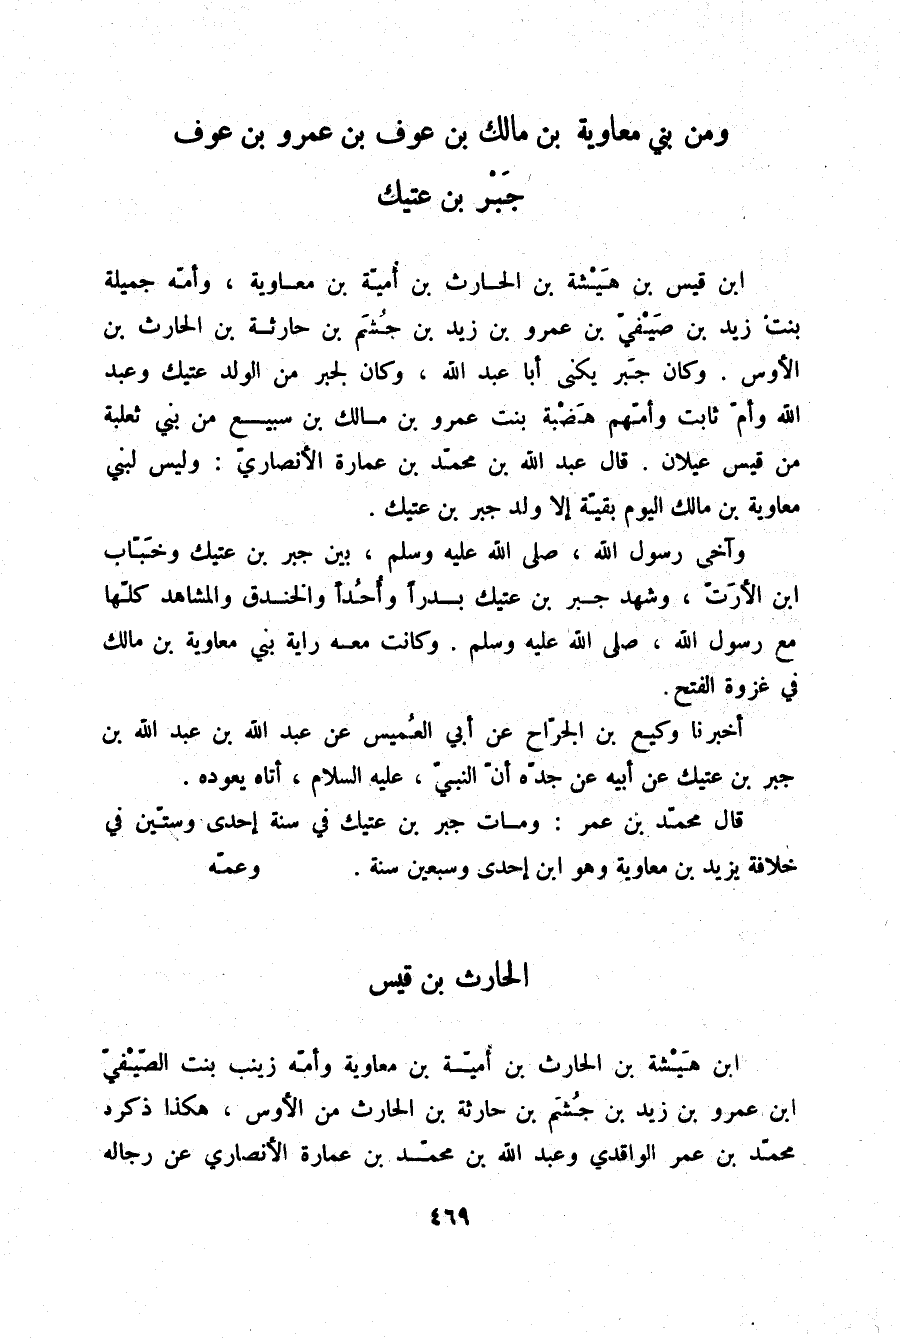 ومن بني معاوية بن مالك بن عوف بن عمرو بن عوف
جَبْر بن عتيك
ابن قيس بن هَيْشة بن الحارث بن أُميّة بن معاوية ، وأمّه جميلة
بنت زيد بن صَيْفيّ بن عمرو بن زيد بن جُشَم بن حارثة بن الحارث بن
الأوس . وكان جَبر يكنى أبا عبد الله ، وكان لجبر من الولد عتيك وعبد
الله وأمّ ثابت وأمّهم هَضْبة بنت عمرو بن مالك بن سبيع من بني ثعلبة
من قيس عيلان . قال عبد الله بن محمّد بن عمارة الأنصاريّ : وليس لبني
معاوية بن مالك اليوم بقيّة إلا ولد جبر بن عتيك .
وآخى رسول الله ، صلى الله عليه وسلم ، بين جبر بن عتيك وخَبّاب
ابن الأرَتّ ، وشهد جبر بن عتيك بدراً وأُحُداً والخندق والمشاهد كلّها
مع رسول الله ، صلى الله عليه وسلم . وكانت معه راية بني معاوية بن مالك
في غزوة الفتح .
أخبرنا وكيع بن الجرّاح عن أبي العُميس عن عبد الله بن عبد الله بن
جبر بن عتيك عن أبيه عن جدّه أنّ النبيّ ، عليه السلام ، أتاه يعوده .
قال محمّد بن عمر : ومات جبر بن عتيك في سنة إحدى وستّين في
خلافة يزيد بن معاوية وهو ابن إحدى وسبعين سنة . وعمّه
الحارث بن قيس
ابن هَيْشة بن الحارث بن أُميّة بن معاوية وأمّه زينب بنت الصّيْفيّ
ابن عمرو بن زيد بن جُشَم بن حارثة بن الحارث من الأوس ، هكذا ذكره
محمّد بن عمر الواقدي وعبد الله بن محمّد بن عمارة الأنصاري عن رجاله
٤٦٩